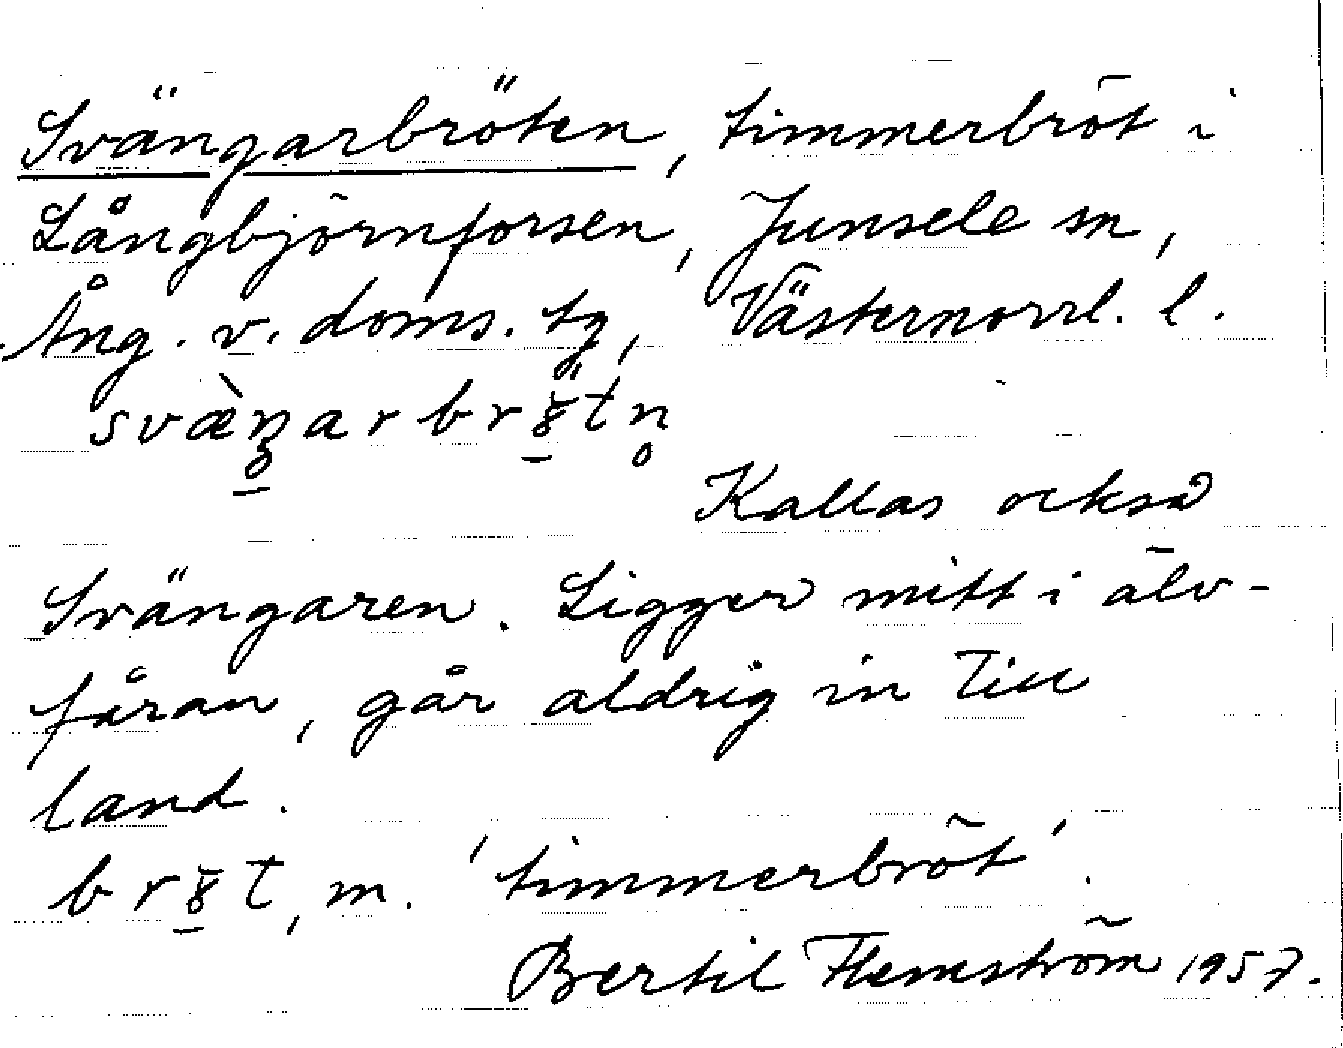 Svängarbröten, timmerbröt i
Långbjörnforsen, Junsele sn,
Ång. v. doms. tg, Västernorrl. l.
Kallas också
Svängaren. Ligger mitt i älv-
fåran, går aldrig in till
land.
m. 'timmerbröt'.
Bertil Flemström 1957.